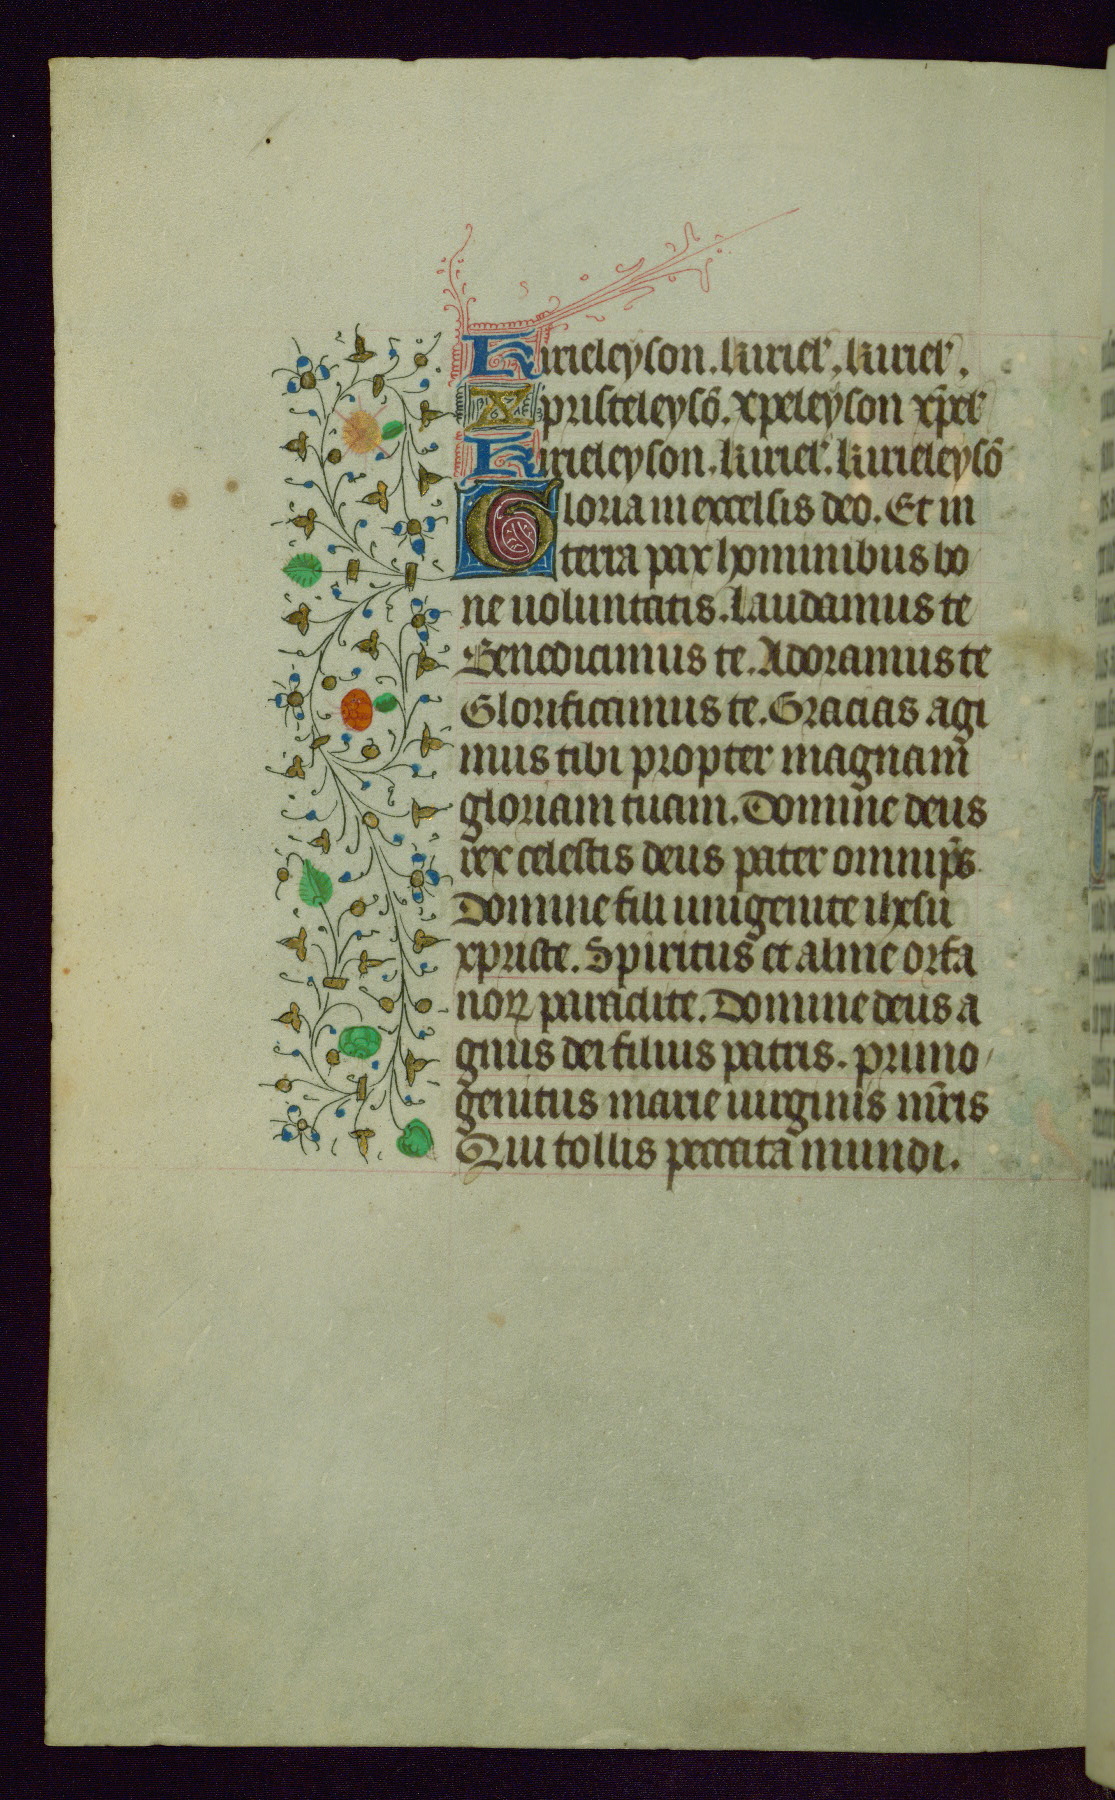 Kirieleyson. kiriel'. kiriel'.
Xpristeleysō. xpeleyson xp̄el'
Kirieleyson. kiriel'. kirieleysō
Gloria in excelsis deo. Et in
terra pax hominibus bo
ne uoluntatis. Laudamus te
Benedicimus te. Adoramus te
Glorificamus te. Gracias agi
mus tibi propter magnam
gloriam tuam. Domine deus
rex celestis deus pater omnip̄s
Domine fili unigenite ihesu
xpriste. Spiritus et alme orfa
noꝝ paraclite. Domine deus a
gnus dei filius patris. primo
genitus marie uirginis mr̄is
Qui tollis peccata mundi.